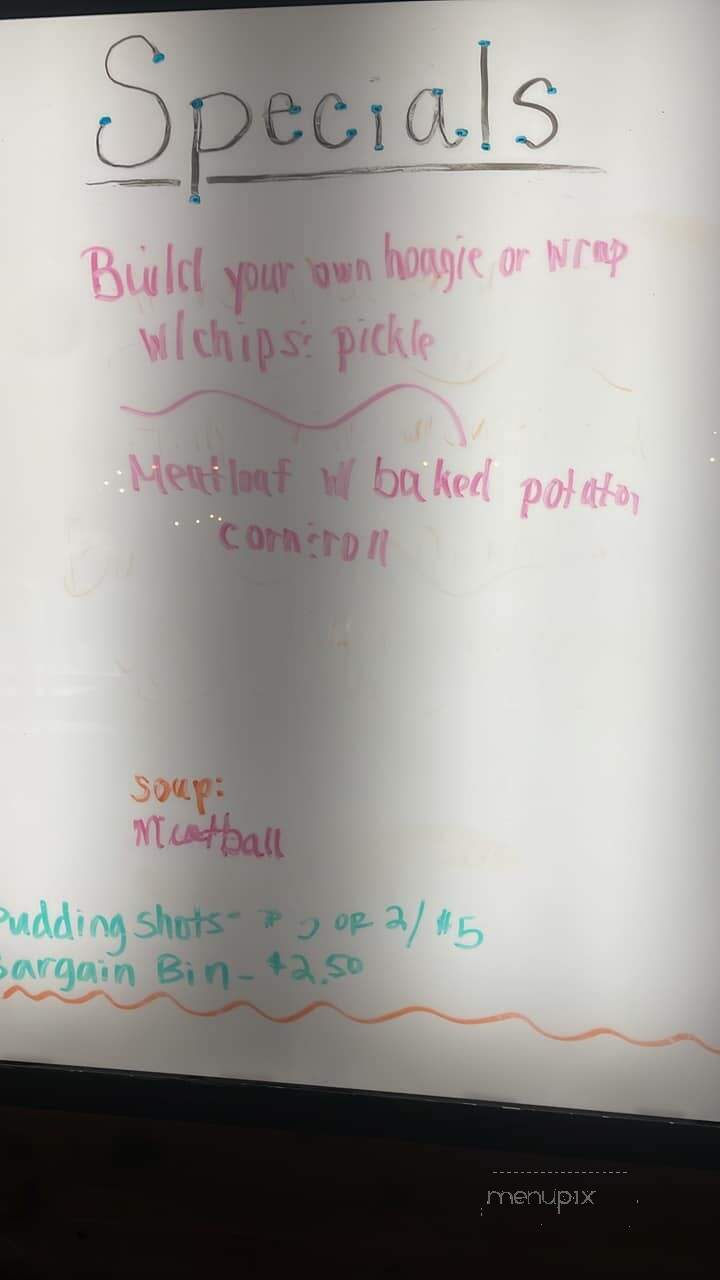 Specials
Build your own hoagie or wrap
w/chips: pickle
Meatloaf w/ baked potato,
corn: roll
Soup:
Meatball
Pudding Shots- OR 2/ $5
Bargain Bin - $2.50
menupix